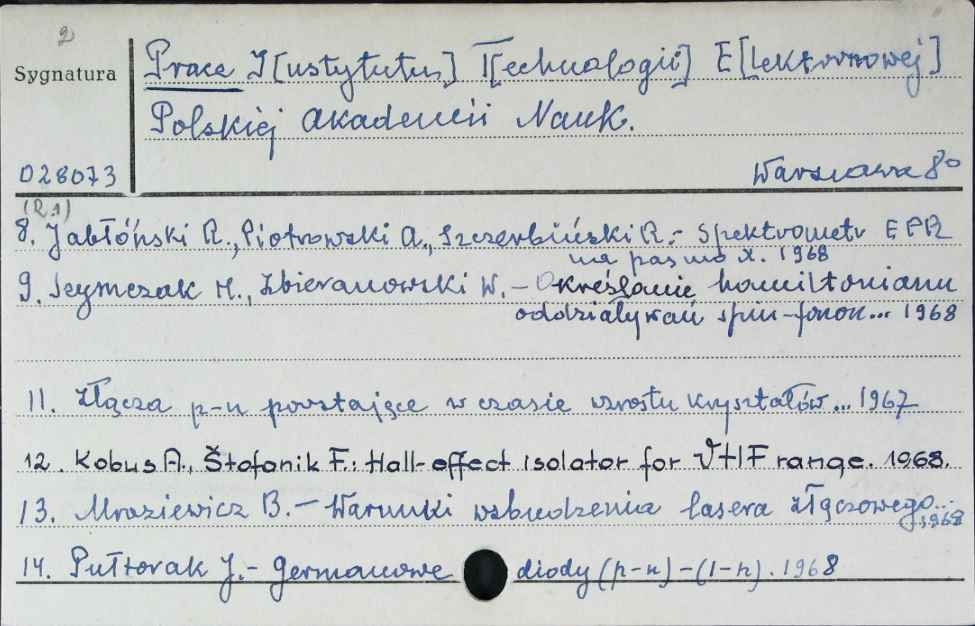 2
Sygnatura
Prace I[nstytutu] T[echnologii] E[lektronowej]
Polskiej Akademii Nauk.
D28073
Warszawa 8°
(R.1)
8. Jabłoński R., Piotrowski A., Szczerbiński R. - Spektrometr EPR
na pasmo X. 1968
9. Szymczak H., Zbieranowski W. - Określanie hamiltonianu
oddziaływań spin-fonon... 1968
11. Złącza p-n powstające w czasie wzrostu kryształów... 1967
12. Kobus A., Štofanik F.: Hall-effect isolator for VHF range. 1968.
13. Mroziewicz B. - Warunki wzbudzenia lasera złączowego...
1968
14. Pułtorak J. - Germanowe diody (p-n)-(l-h). 1968